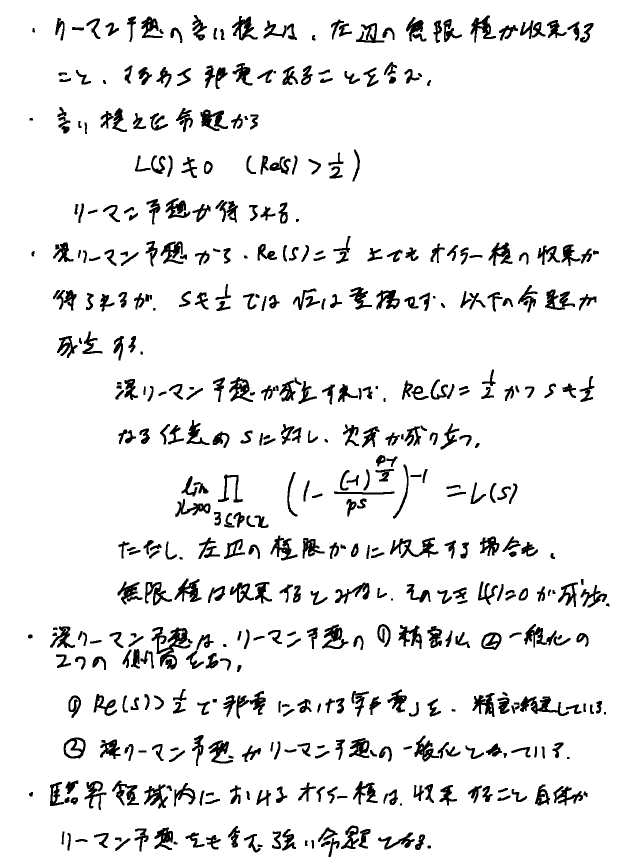 ・リーマン予想の言い換えは、左辺の無限積が収束する
こと、すなわち非零であることを含む。
・言い換えた命題から
L(s)≠0 (Re(s)>1/2)
リーマン予想が得られる.
・深リーマン予想から、Re(s)=1/2 上でもオイラー積の収束が
得られるが、s≠1/2 では √2は登場せず、以下の命題が
成立する.
深リーマン予想が成立すれば、Re(s)=1/2 かつ s≠1/2
なる任意の s に対し、次式が成り立つ。
lim_{x→∞} ∏_{3≦p<x} (1-(-1)^{(p-1)/2}/p^s)^{-1} = L(s)
ただし、左辺の極限が0に収束する場合も、
無限積は収束するとみなし、そのとき L(s)=0 が成り立つ.
・深リーマン予想は、リーマン予想の ①精密化 ②一般化の
2つの側面をもつ。
① Re(s)>1/2 で非零における「非零」を、精密に している.
② 深リーマン予想がリーマン予想の一般化となっている.
・臨界領域内におけるオイラー積は、収束すること自体が
リーマン予想をも含む強い命題となる.